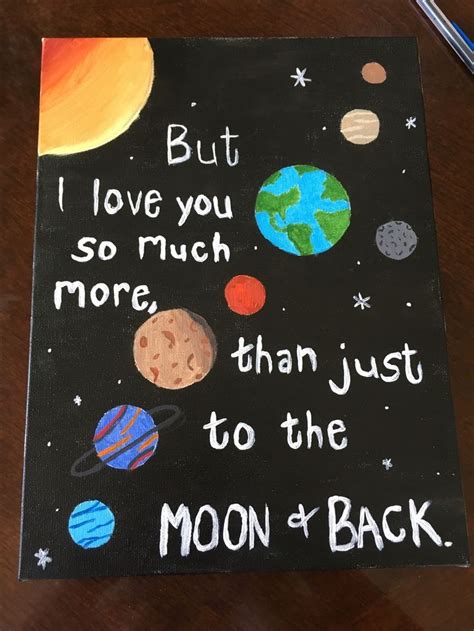 But
I love you
so much
more,
than just
to the
MOON & BACK.